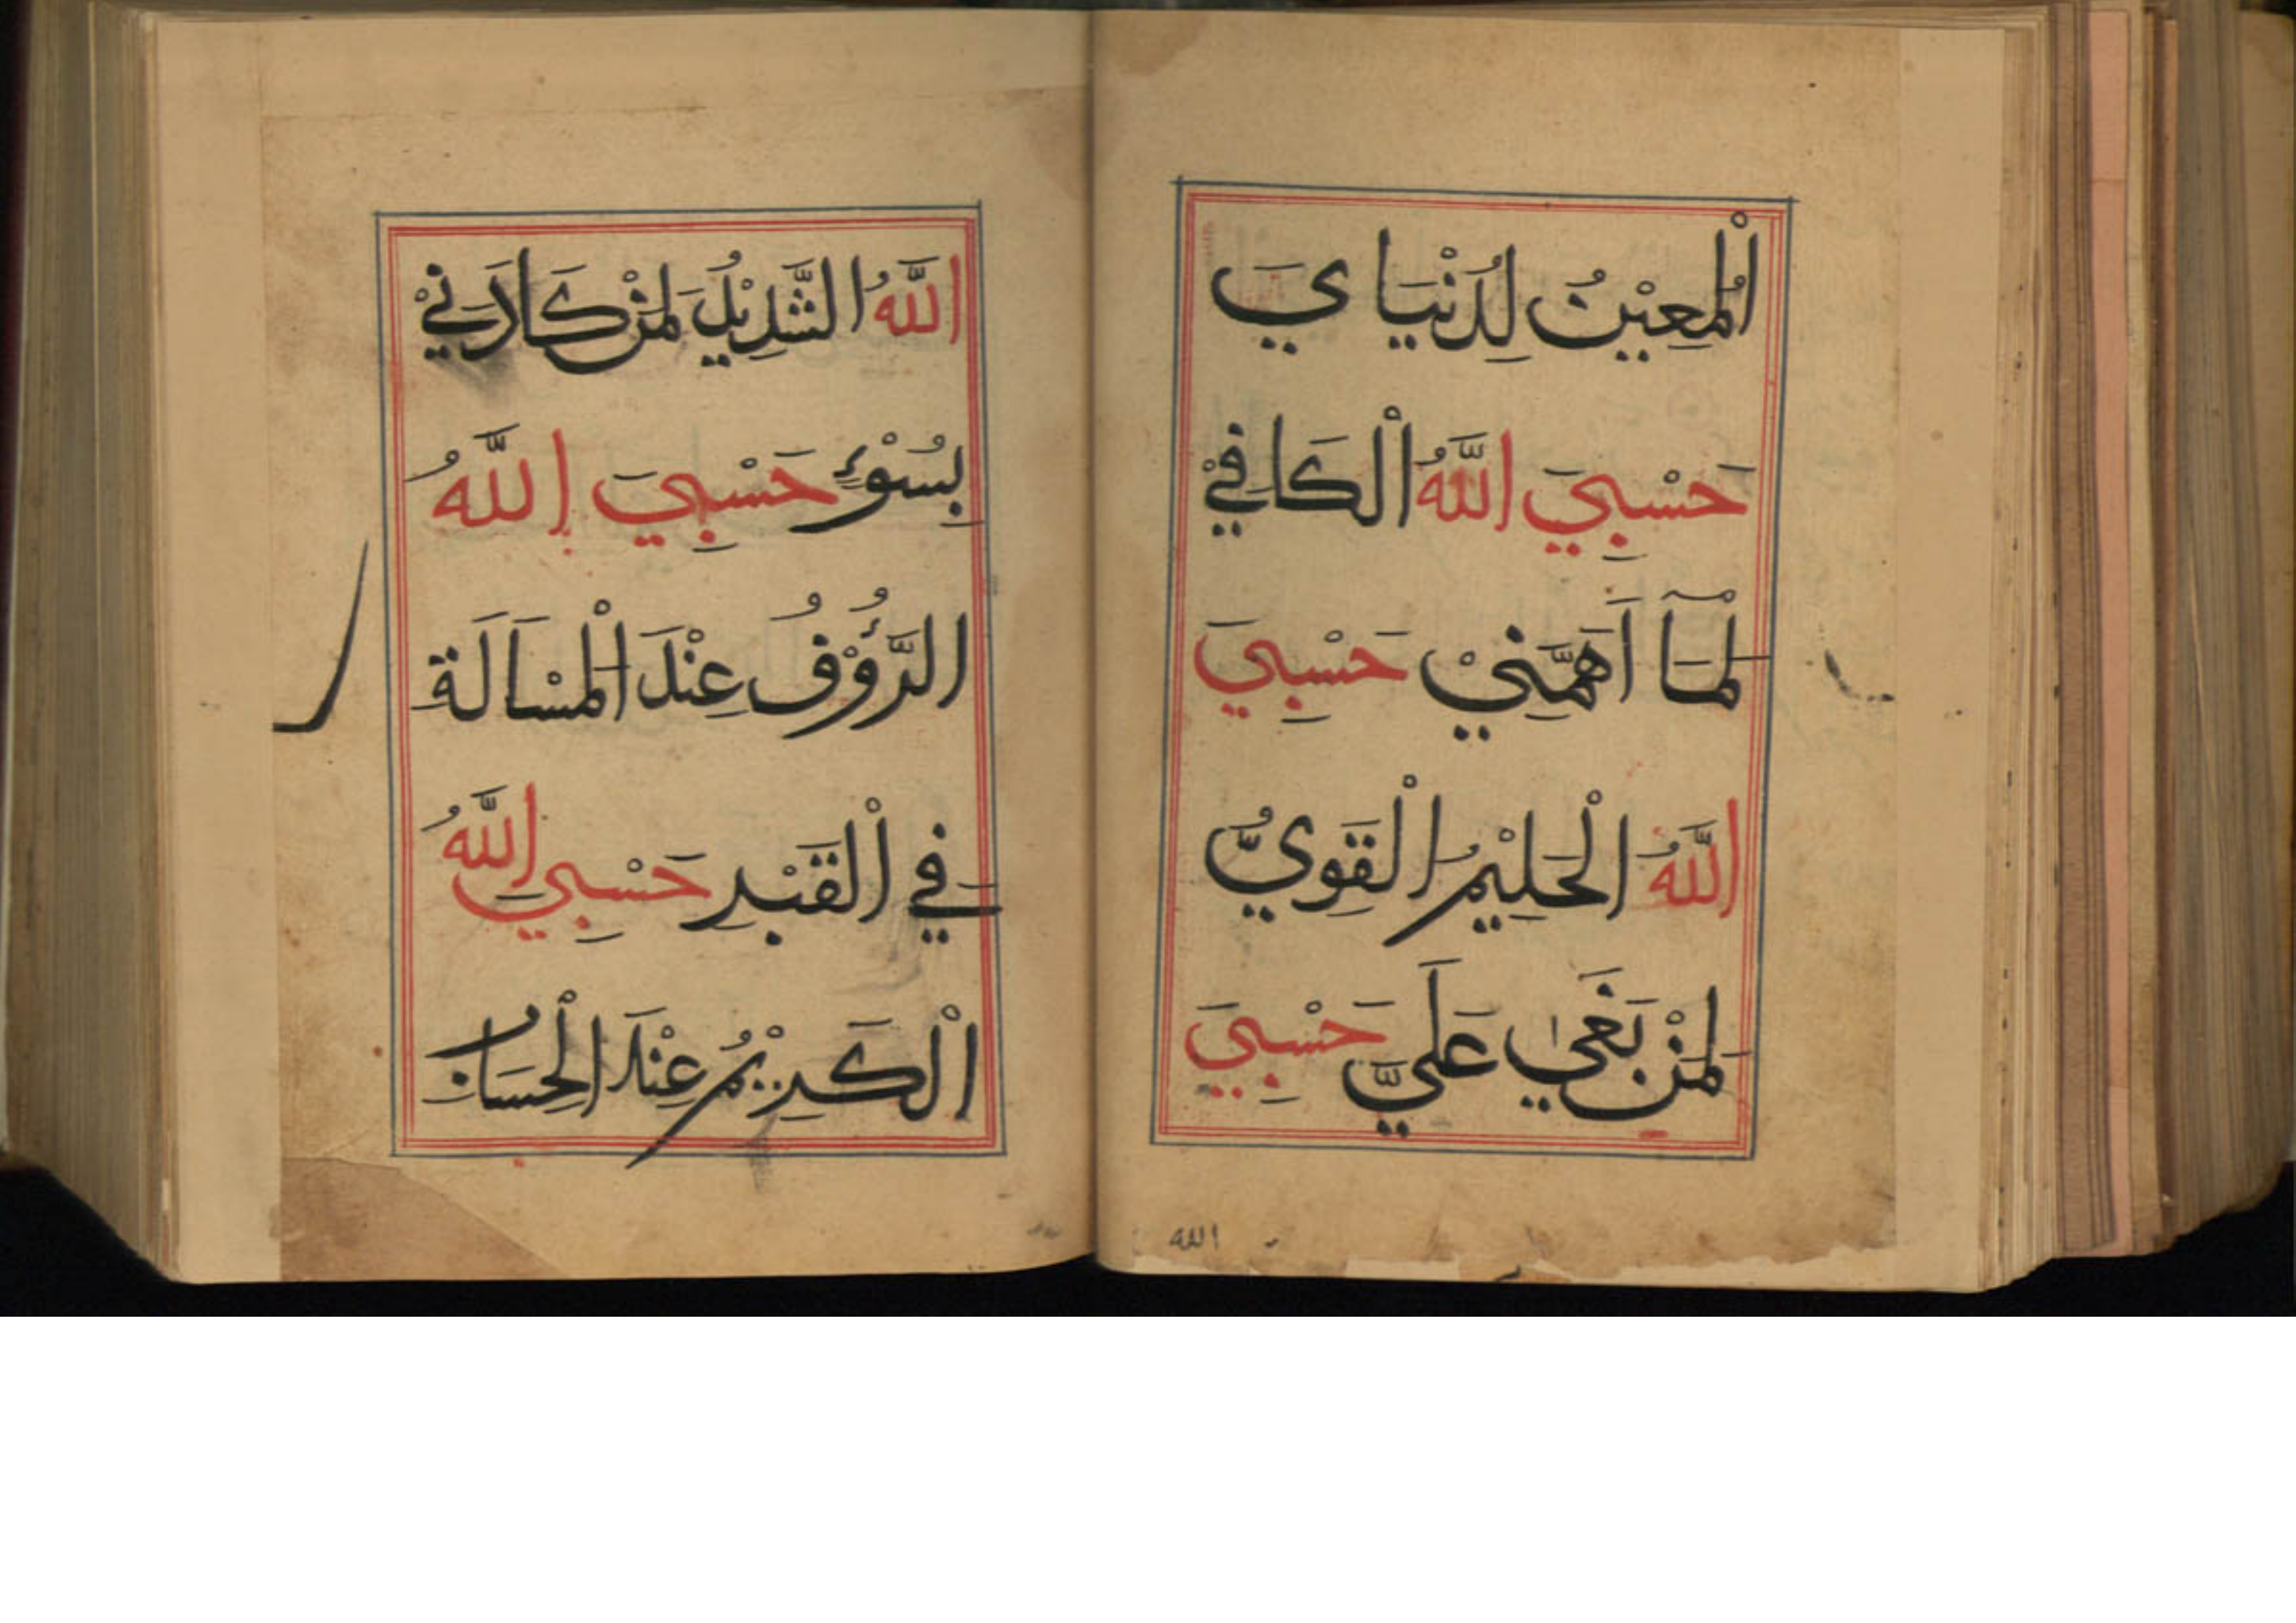 اَلْمُعِيْنُ لِدُنْيَايَ
حَسْبِيَ اللّٰهُ الْكَافِيْ
لِمَآ اَهَمَّنِيْ حَسْبِيَ
اللّٰهُ الْحَلِيْمُ الْقَوِيُّ
لِمَنْ بَغٰى عَلَيَّ حَسْبِيَ
الله
اللّٰهُ الشَّدِيْدُ لِمَنْ كَادَنِيْ
بِسُوْءٍ حَسْبِيَ اللّٰهُ
الرَّؤُوْفُ عِنْدَ الْمَسْاَلَةِ
فِي الْقَبْرِ حَسْبِيَ اللّٰهُ
الْكَرِيْمُ عِنْدَ الْحِسَابِ